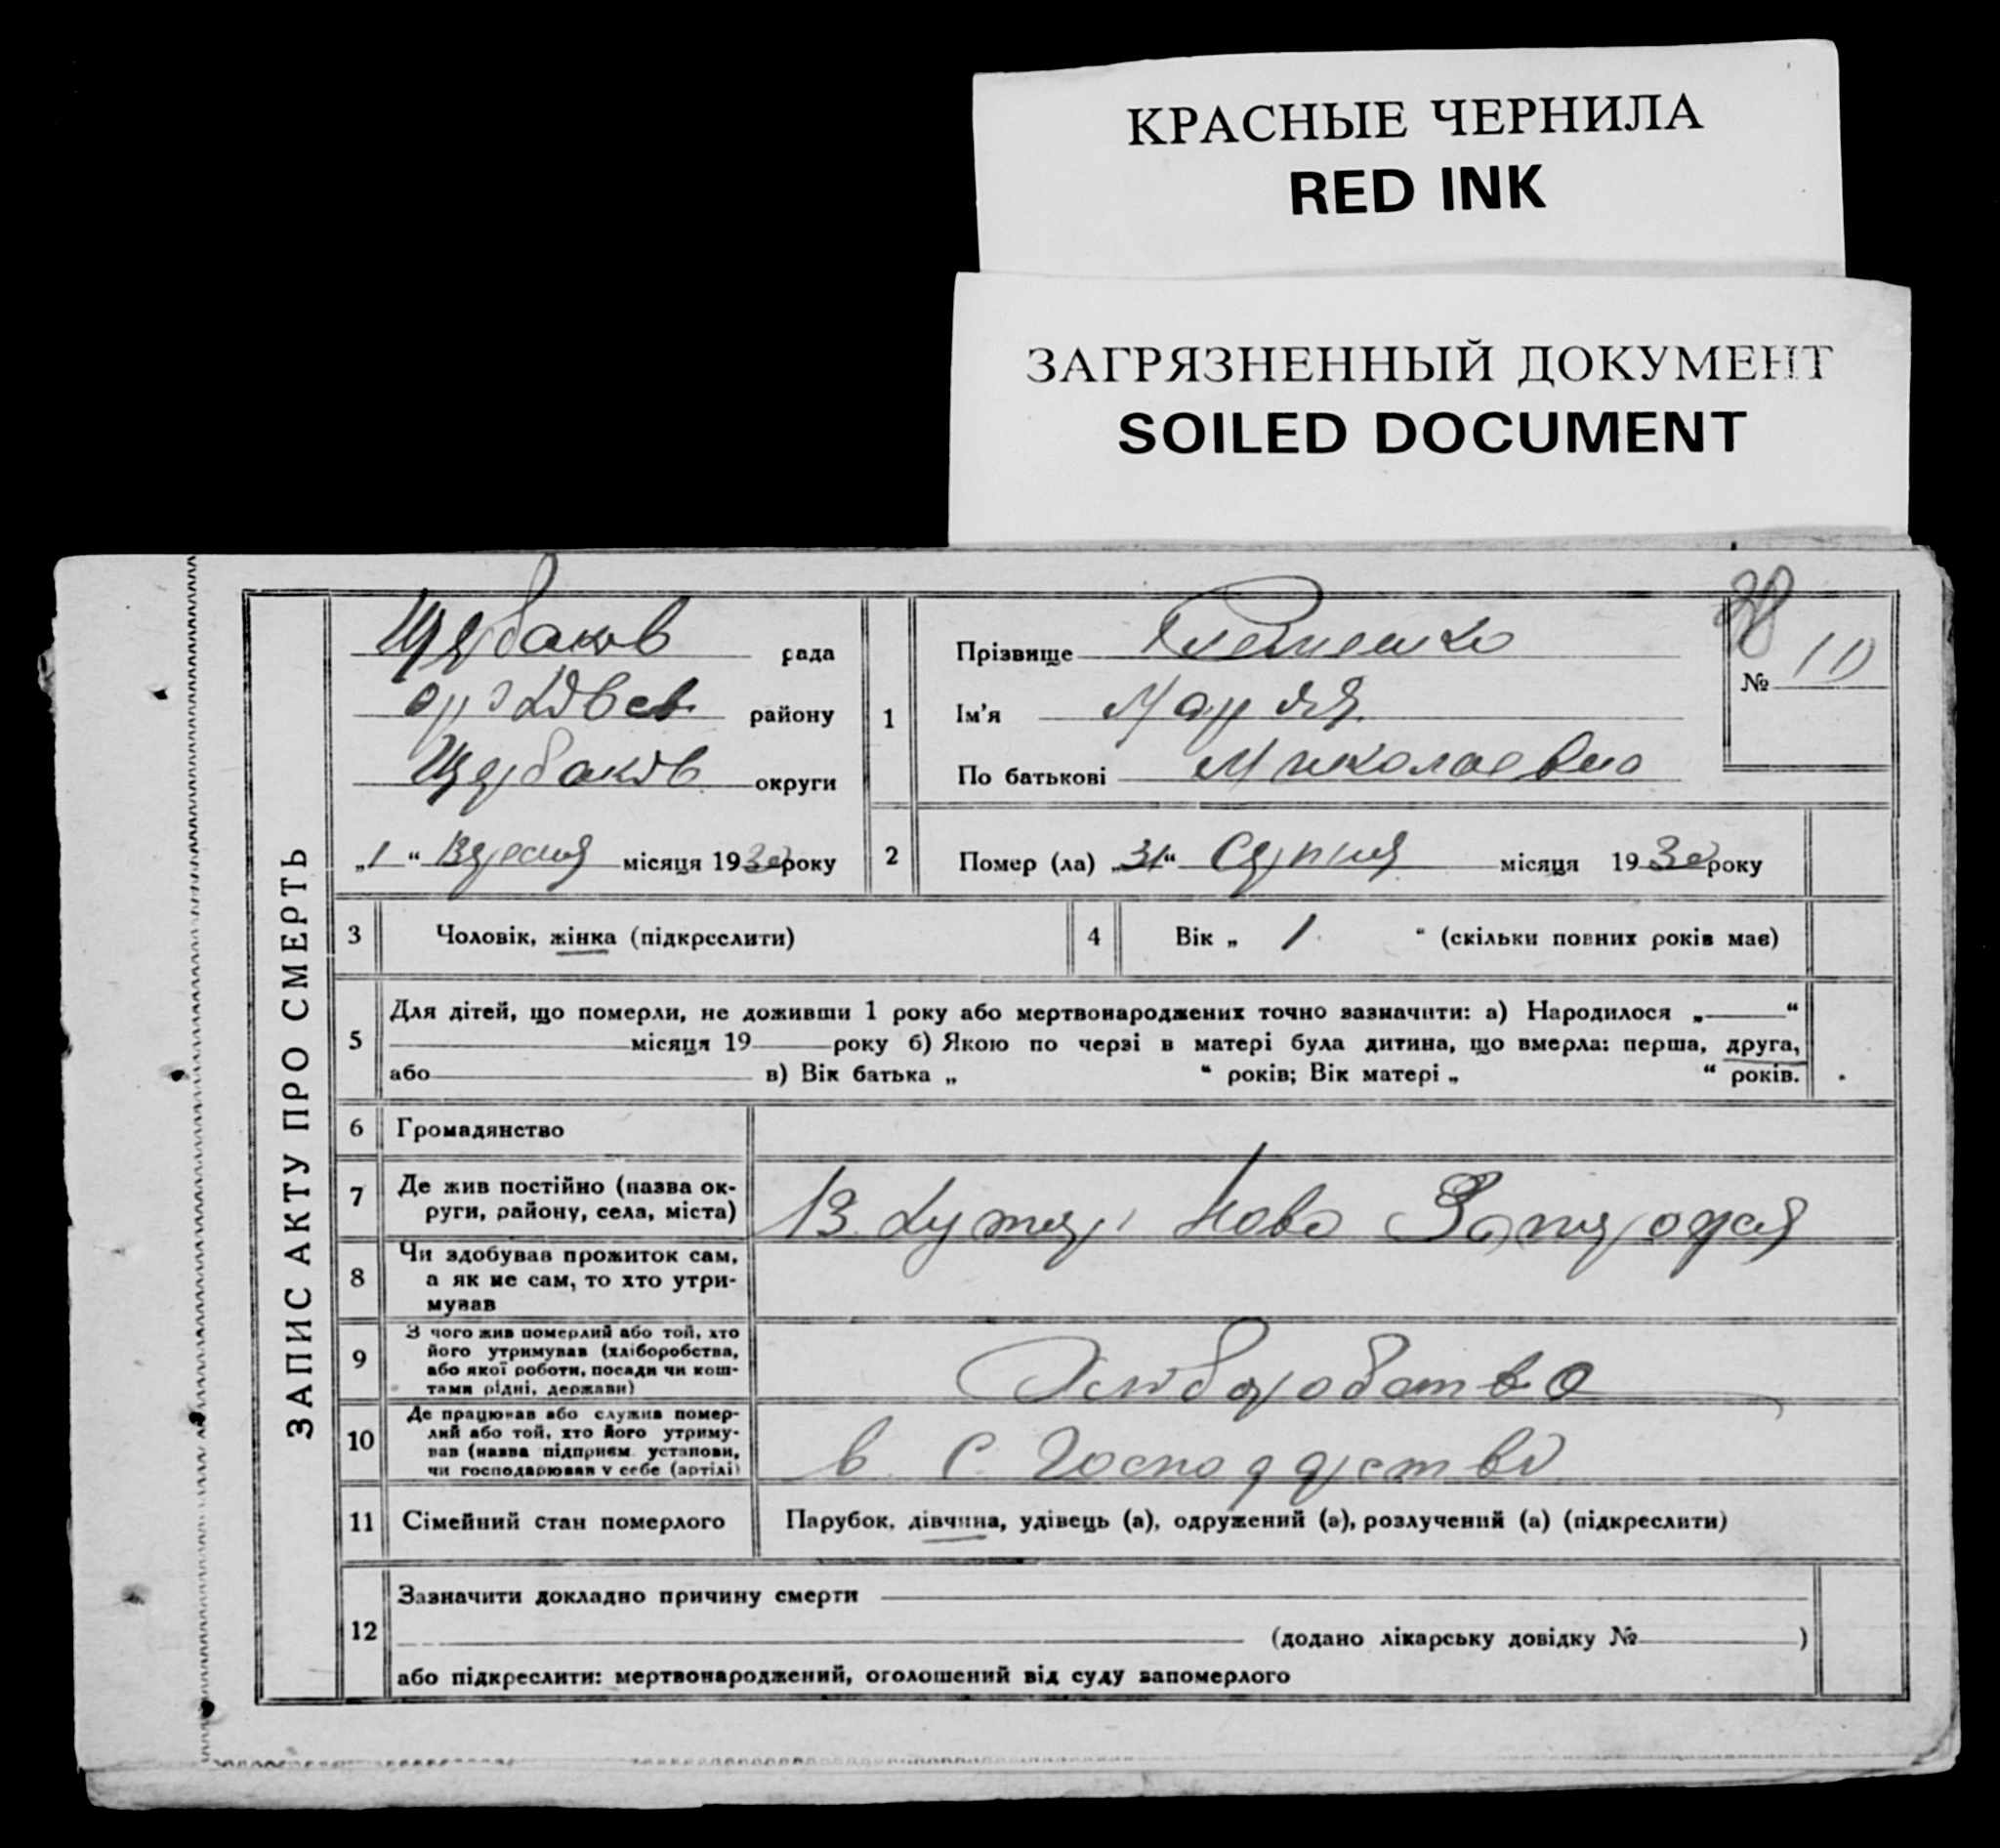 КРАСНЫЕ ЧЕРНИЛА
RED INK
ЗАГРЯЗНЕННЫЙ ДОКУМЕНТ
SOILED DOCUMENT
ЗАПИС АКТУ ПРО СМЕРТЬ
Щербаков рада
району
Щербаков округи
„1“ Вересня місяця 1930 року
1
Прізвище
Ім’я Марія
По батькові Миколаевна
№ 11
2 Помер (ла) „31“ Серпня місяця 1930 року
3 Чоловік, жінка (підкреслити)
4 Вік „ 1 “ (скільки повних років має)
5 Для дітей, що померли, не доживши 1 року або мертвонароджених точно зазначити: а) Народилося „ “
місяця 19 року б) Якою по черзі в матері була дитина, що вмерла: перша, друга,
або в) Вік батька „ “ років; Вік матері „ “ років.
6 Громадянство
7 Де жив постійно (назва ок-
руги, району, села, міста)
В хутері Ново
8 Чи здобував прожиток сам,
а як не сам, то хто утри-
мував
9 З чого жив померлий або той, хто
його утримував (хліборобства,
або якої роботи, посади чи кош-
тами рідні, держави)
Хлиборобство
10 Де працював або служив помер-
лий або той, хто його утриму-
вав (назва підприєм. установи,
чи господарював у себе (артілі)
в С. Господарстві
11 Сімейний стан померлого Парубок, дівчина, удівець (а), одружений (а), розлучений (а) (підкреслити)
12 Зазначити докладно причину смерти
(додано лікарську довідку № )
або підкреслити: мертвонароджений, оголошений від суду запомерлого